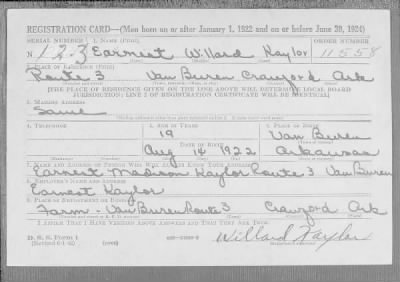 REGISTRATION CARD—(Men born on or after January 1, 1922 and on or before June 30, 1924)
SERIAL NUMBER 1. NAME (Print) ORDER NUMBER
N 123 Earnest Willard Kaylor 11558
2. PLACE OF RESIDENCE (Print)
Route 3 Van Buren Crawford Ark
[THE PLACE OF RESIDENCE GIVEN ON THE LINE ABOVE WILL DETERMINE LOCAL BOARD
JURISDICTION; LINE 2 OF REGISTRATION CERTIFICATE WILL BE IDENTICAL]
3. MAILING ADDRESS
Same
4. TELEPHONE 5. AGE IN YEARS 6. PLACE OF BIRTH
19 Van Buren
DATE OF BIRTH
Aug 14 1922 Arkansas
7. NAME AND ADDRESS OF PERSON WHO WILL ALWAYS KNOW YOUR ADDRESS
Earnest Madison Kaylor Route 3 Van Buren
8. EMPLOYER'S NAME AND ADDRESS
Earnest Kaylor
9. PLACE OF EMPLOYMENT OR BUSINESS
Farm - Van Buren Route 3 Crawford Ark
I AFFIRM THAT I HAVE VERIFIED ABOVE ANSWERS AND THAT THEY ARE TRUE.
D. S. S. Form 1
(Revised 6-1-42) (over) Willard Kaylor